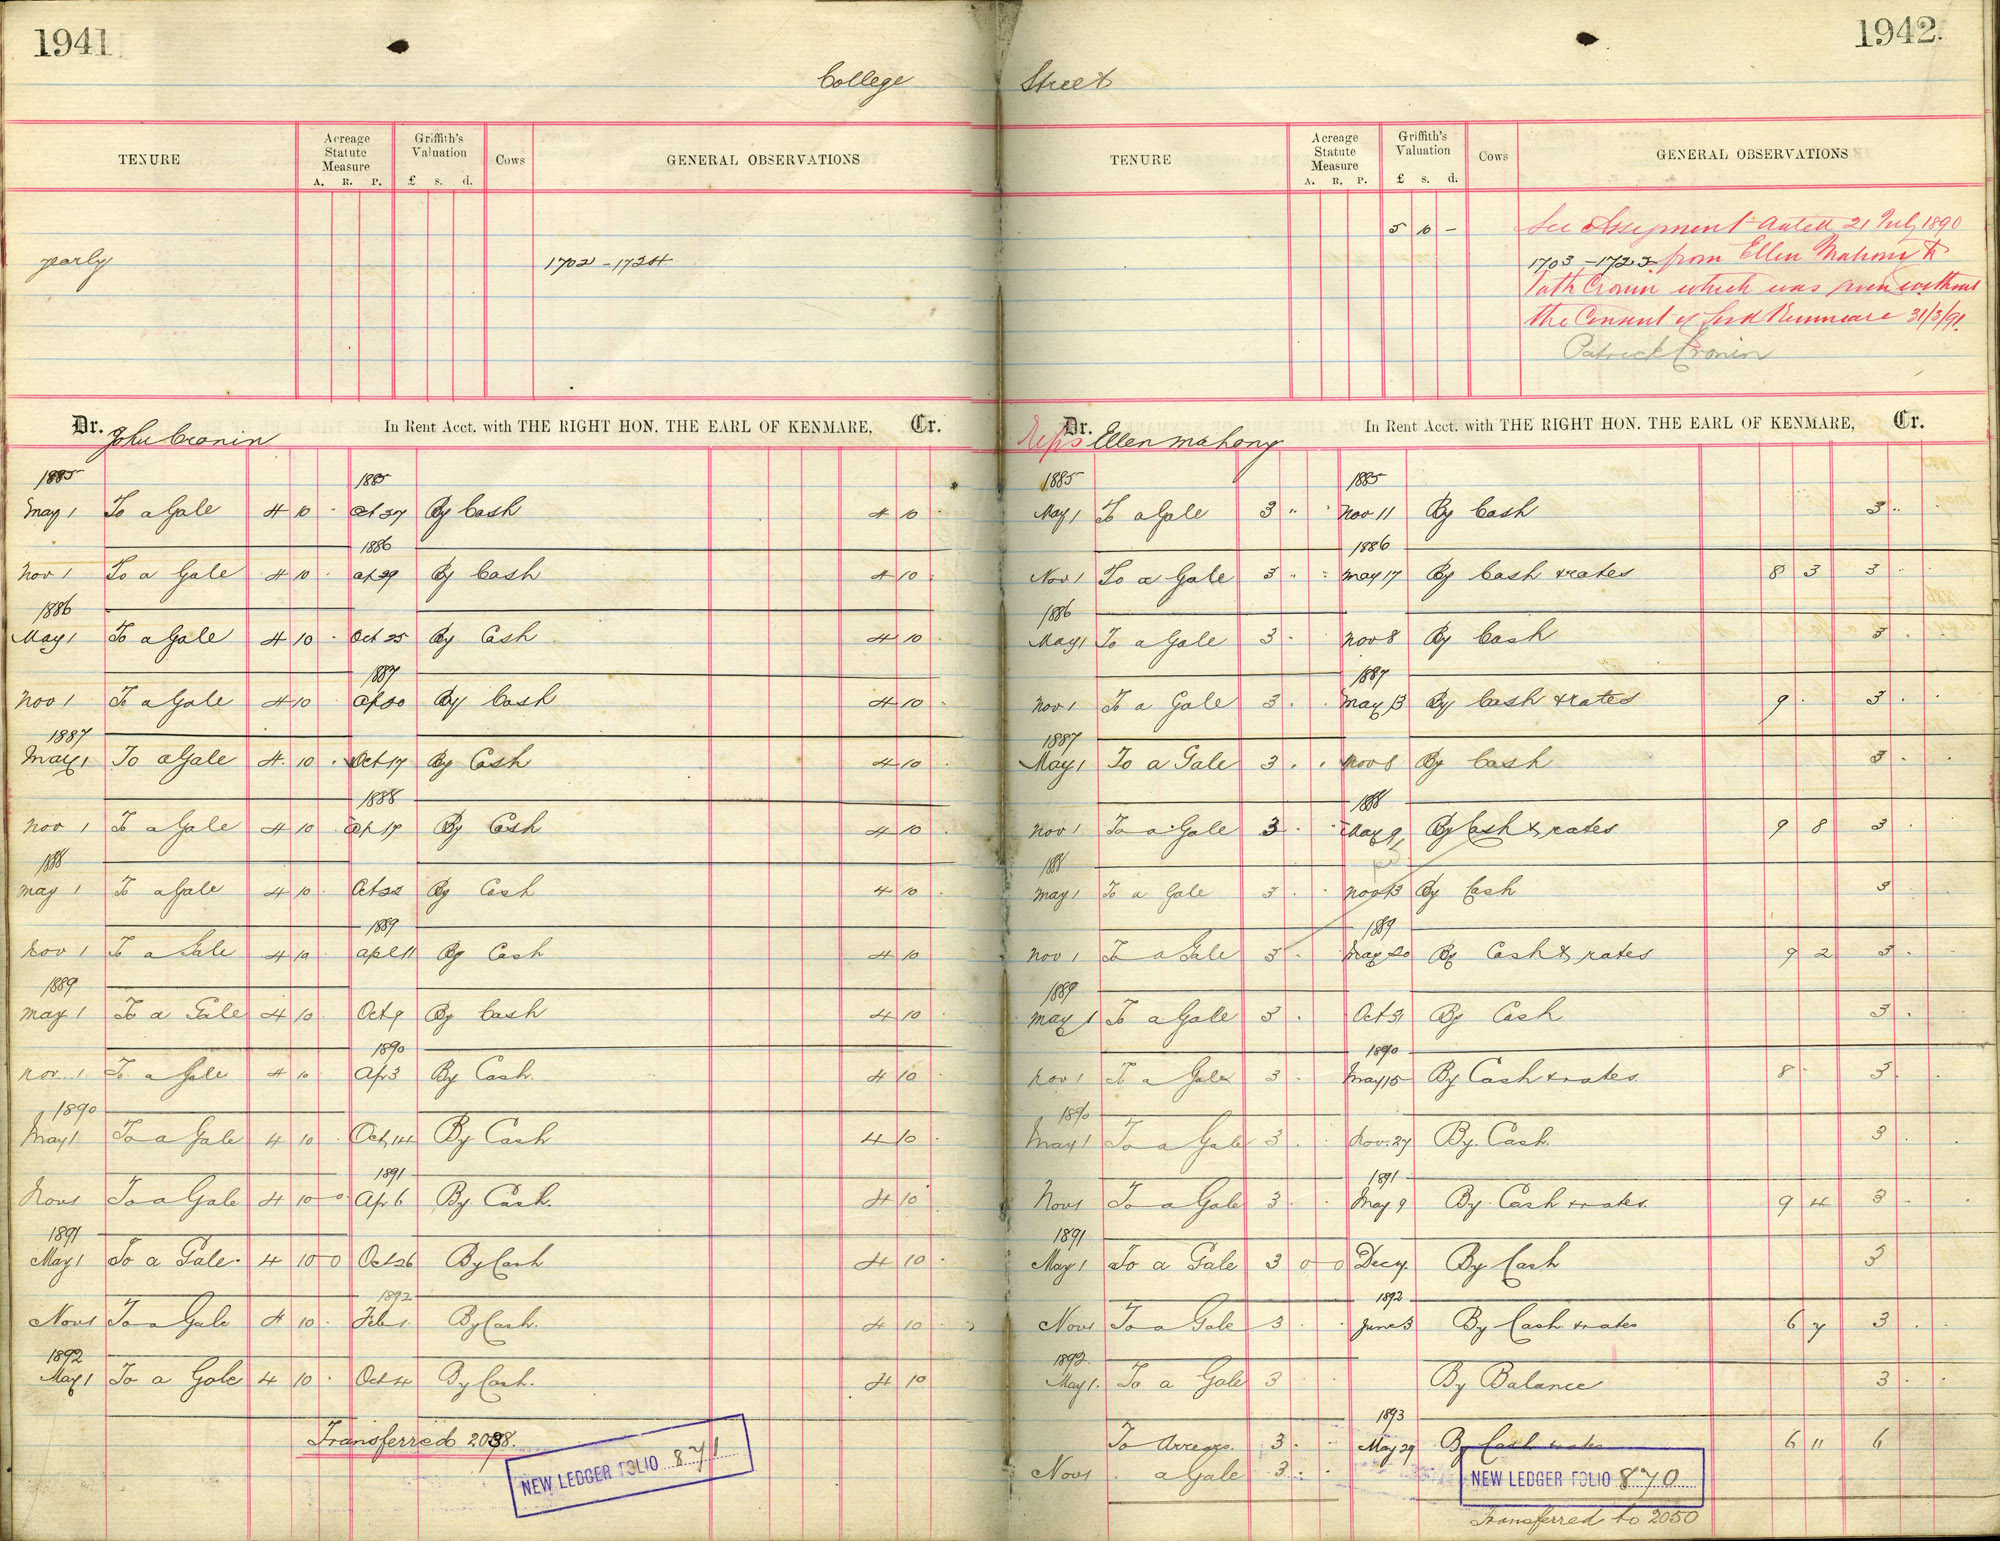 1941
College
TENURE
Acreage Statute Measure
A. R. P.
Griffith's Valuation
£ s. d.
Cows
GENERAL OBSERVATIONS
yearly
1702 - 1724
Dr. John Cronin In Rent Acct. with THE RIGHT HON. THE EARL OF KENMARE, Cr.
1885 1885
May 1 To a Gale 4 10 27 By Cash 4 10
1886
Nov 1 To a Gale 4 10 29 By Cash 4 10
1886
May 1 To a Gale 4 10 Oct 25 By Cash 4 10
1887
Nov 1 To a Gale 4 10 By Cash 4 10
1887
May 1 To a Gale 4 10 Oct 17 By Cash 4 10
1888
Nov 1 To a Gale 4 10 Ap 17 By Cash 4 10
1888
May 1 To a Gale 4 10 Oct 22 By Cash 4 10
1889
Nov 1 To a Gale 4 10 Apl 11 By Cash 4 10
1889
May 1 To a Gale 4 10 Oct 9 By Cash 4 10
1890
Nov. 1 To a Gale 4 10 Ap 3 By Cash 4 10
1890
May 1 To a Gale 4 10 Oct 14 By Cash 4 10
1891
Nov 1 To a Gale 4 10 0 Apr 6 By Cash. 4 10
1891
May 1 To a Gale 4 10 0 Oct 26 By Cash 4 10
1892
Nov 1 To a Gale 4 10 Feb 1 By Cash. 4 10
1892
May 1 To a Gale 4 10 Oct 4 By Cash. 4 10
Transferred
NEW LEDGER FOLIO 871
1942.
Street
TENURE
Acreage Statute Measure
A. R. P.
Griffith's Valuation
£ s. d.
Cows
GENERAL OBSERVATIONS
5 10 -
See Assignment dated 21 July 1890
1703 - 1723 from Ellen Mahony to
Path Cronin which was given without
the Consent of Lord Kenmare 31/3/91.
Patrick Cronin
Reps Dr. Ellen Mahony In Rent Acct. with THE RIGHT HON. THE EARL OF KENMARE, Cr.
1885 1885
May 1 To a Gale 3 " Nov 11 By Cash 3 "
1886
Nov 1 To a Gale 3 May 17 By Cash & rates 8 3 3
1886
May 1 To a Gale 3 Nov 8 By Cash 3
1887
Nov 1 To a Gale 3 May 13 By Cash & rates 9 3
1887
May 1 To a Gale 3 Nov 8 By Cash 3
1888
Nov 1 To a Gale 3 May 9 By Cash & rates 9 8 3
1888
May 1 To a Gale 3 Nov 13 By Cash 3
1889
Nov 1 To a Gale 3 May 20 By Cash & rates 9 2 3
1889
May 1 To a Gale 3 Oct 31 By Cash 3
1890
Nov 1 To a Gale 3 May 15 By Cash & rates 8 3
1890
May 1 To a Gale 3 Nov. 27 By Cash. 3
1891
Nov 1 To a Gale 3 May 9 By Cash & rates. 9 4 3
1891
May 1 To a Gale 3 0 0 Dec 7 By Cash 3
1892
Nov 1 To a Gale 3 June 3 By Cash & rates 6 7 3
1892.
May 1. To a Gale 3 By Balance 3
1893
To Arrears 3 May 29 By Cash & rates 6 11 6
Nov 1 a Gale 3
NEW LEDGER FOLIO 870
Transferred to 2050